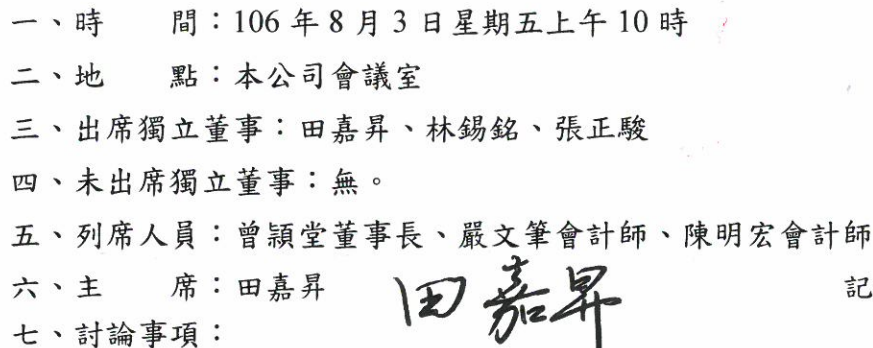 一、時　　間：106 年 8 月 3 日星期五上午 10 時
二、地　　點：本公司會議室
三、出席獨立董事：田嘉昇、林錫銘、張正駿
四、未出席獨立董事：無。
五、列席人員：曾頴堂董事長、嚴文筆會計師、陳明宏會計師
六、主　　席：田嘉昇　田嘉昇　記
七、討論事項：